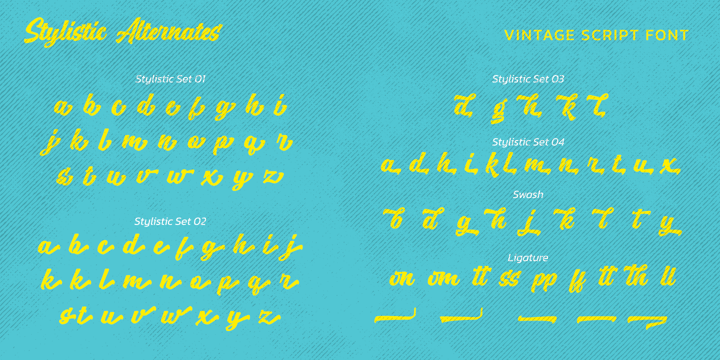 Stylistic Alternates
VINTAGE SCRIPT FONT
Stylistic Set 01
a b c d e f g h i
j k l m n o p q r
s t u v w x y z
Stylistic Set 02
a b c d e f g h i j
k k l m n o p q r
s t u v w x y z
Stylistic Set 03
d g h k t
Stylistic Set 04
a d h i k l m n r t u x
Swash
b d g h j k l t y
Ligature
on om tt ss pp ff tt th ll